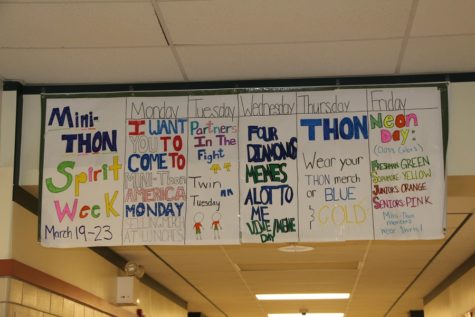 Mini-
THON
Spirit
Week
March 19-23
Monday
I WANT
YOU TO
COME TO
MINI-THON
AMERICA
MONDAY
Tuesday
Partners
In The
Fight
Twin
Tuesday
Wednesday
FOUR
DIAMONDS
MEMES
A LOT TO
ME
VINE/MEME
DAY
Thursday
THON
Wear your
THON merch
or BLUE
& GOLD
Friday
Neon
Day:
(Class Colors)
FRESHMAN GREEN
SOPHOMORE YELLOW
JUNIORS ORANGE
SENIORS PINK
Mini-Thon
members
wear